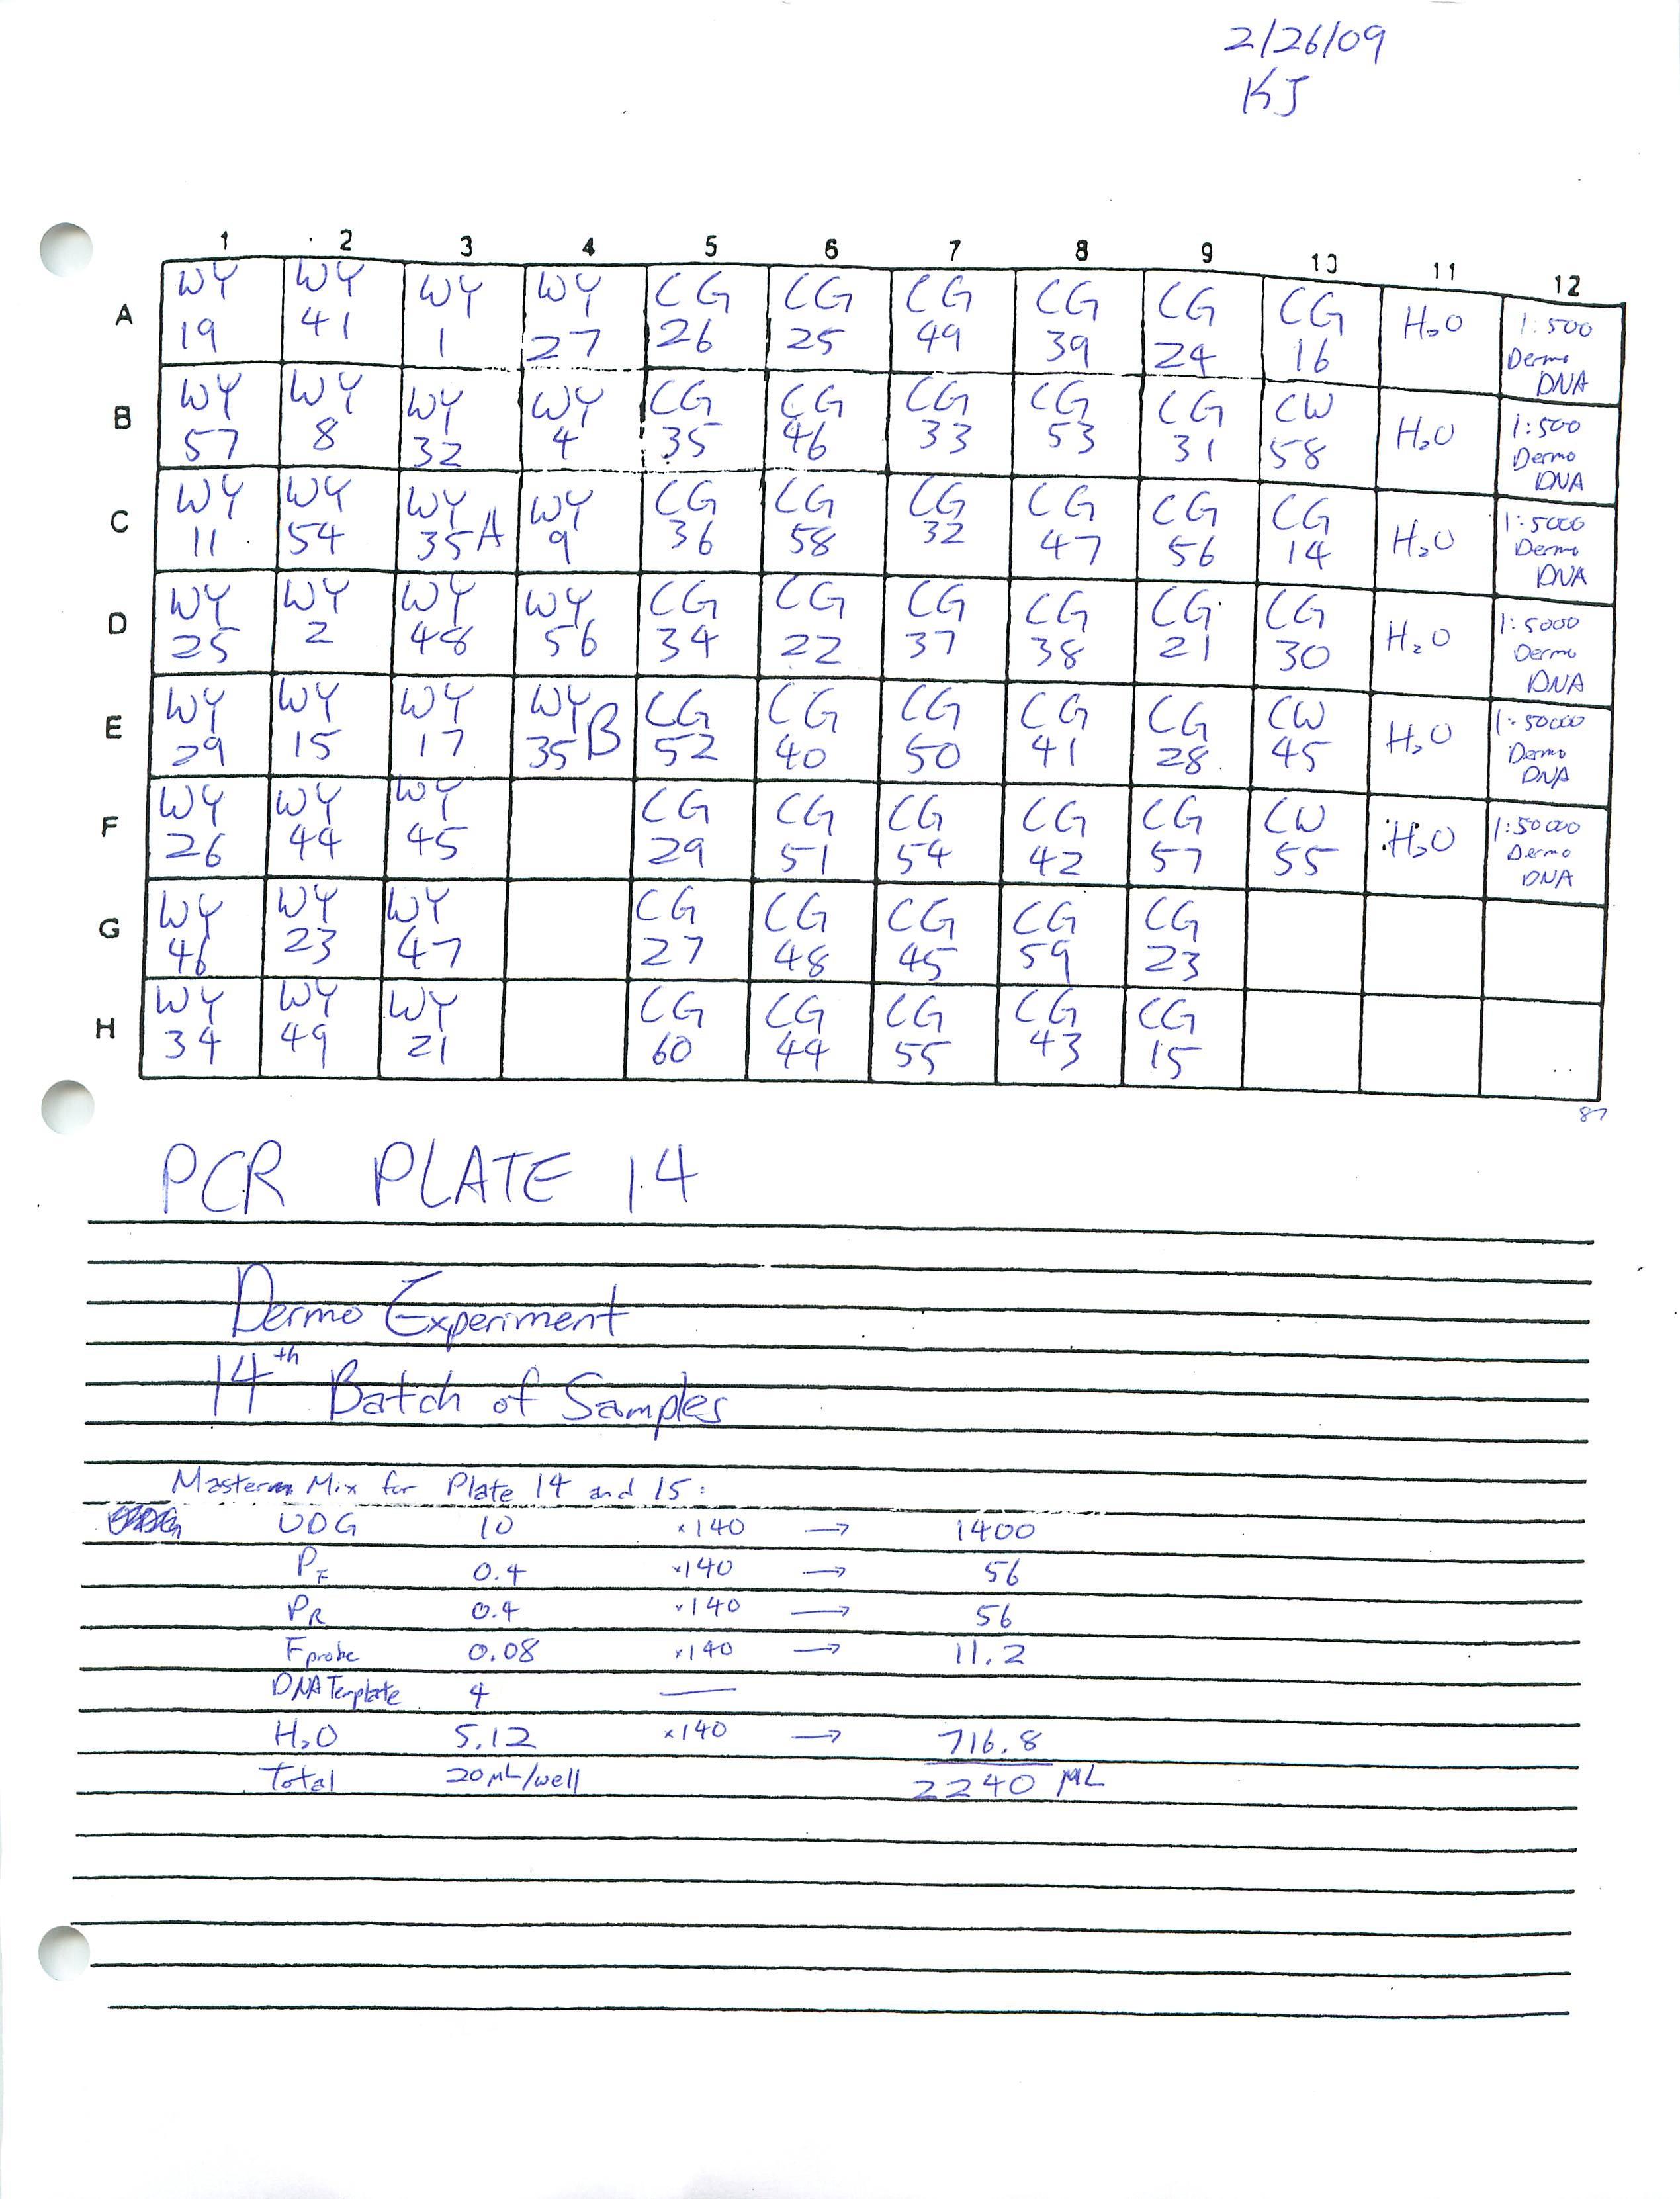 2/26/09
KJ
1 2 3 4 5 6 7 8 9 10 11 12
A WY 19 WY 41 WY 1 WY 27 CG 26 CG 25 CG 49 CG 39 CG 24 CG 16 H2O 1:500 Dermo DNA
B WY 57 WY 8 WY 32 WY 4 CG 35 CG 46 CG 33 CG 53 CG 31 CW 58 H2O 1:500 Dermo DNA
C WY 11 WY 54 WY 35A WY 9 CG 36 CG 58 CG 32 CG 47 CG 56 CG 14 H2O 1:5000 Dermo DNA
D WY 25 WY 2 WY 48 WY 56 CG 34 CG 22 CG 37 CG 38 CG 21 CG 30 H2O 1:5000 Dermo DNA
E WY 29 WY 15 WY 17 WY 35B CG 52 CG 40 CG 50 CG 41 CG 28 CW 45 H2O 1:50000 Dermo DNA
F WY 26 WY 44 WY 45 CG 29 CG 51 CG 54 CG 42 CG 57 CW 55 H2O 1:50000 Dermo DNA
G WY 46 WY 23 WY 47 CG 27 CG 48 CG 45 CG 59 CG 23
H WY 34 WY 49 WY 21 CG 60 CG 44 CG 55 CG 43 CG 15
87
PCR PLATE 14
Dermo Experiment
14th Batch of Samples
Master Mix for Plate 14 and 15:
UDG 10 ×140 → 1400
PF 0.4 ×140 → 56
PR 0.4 ×140 → 56
Fprobe 0.08 ×140 → 11.2
DNA Template 4 —
H2O 5.12 ×140 → 716.8
Total 20 µL/well 2240 µL